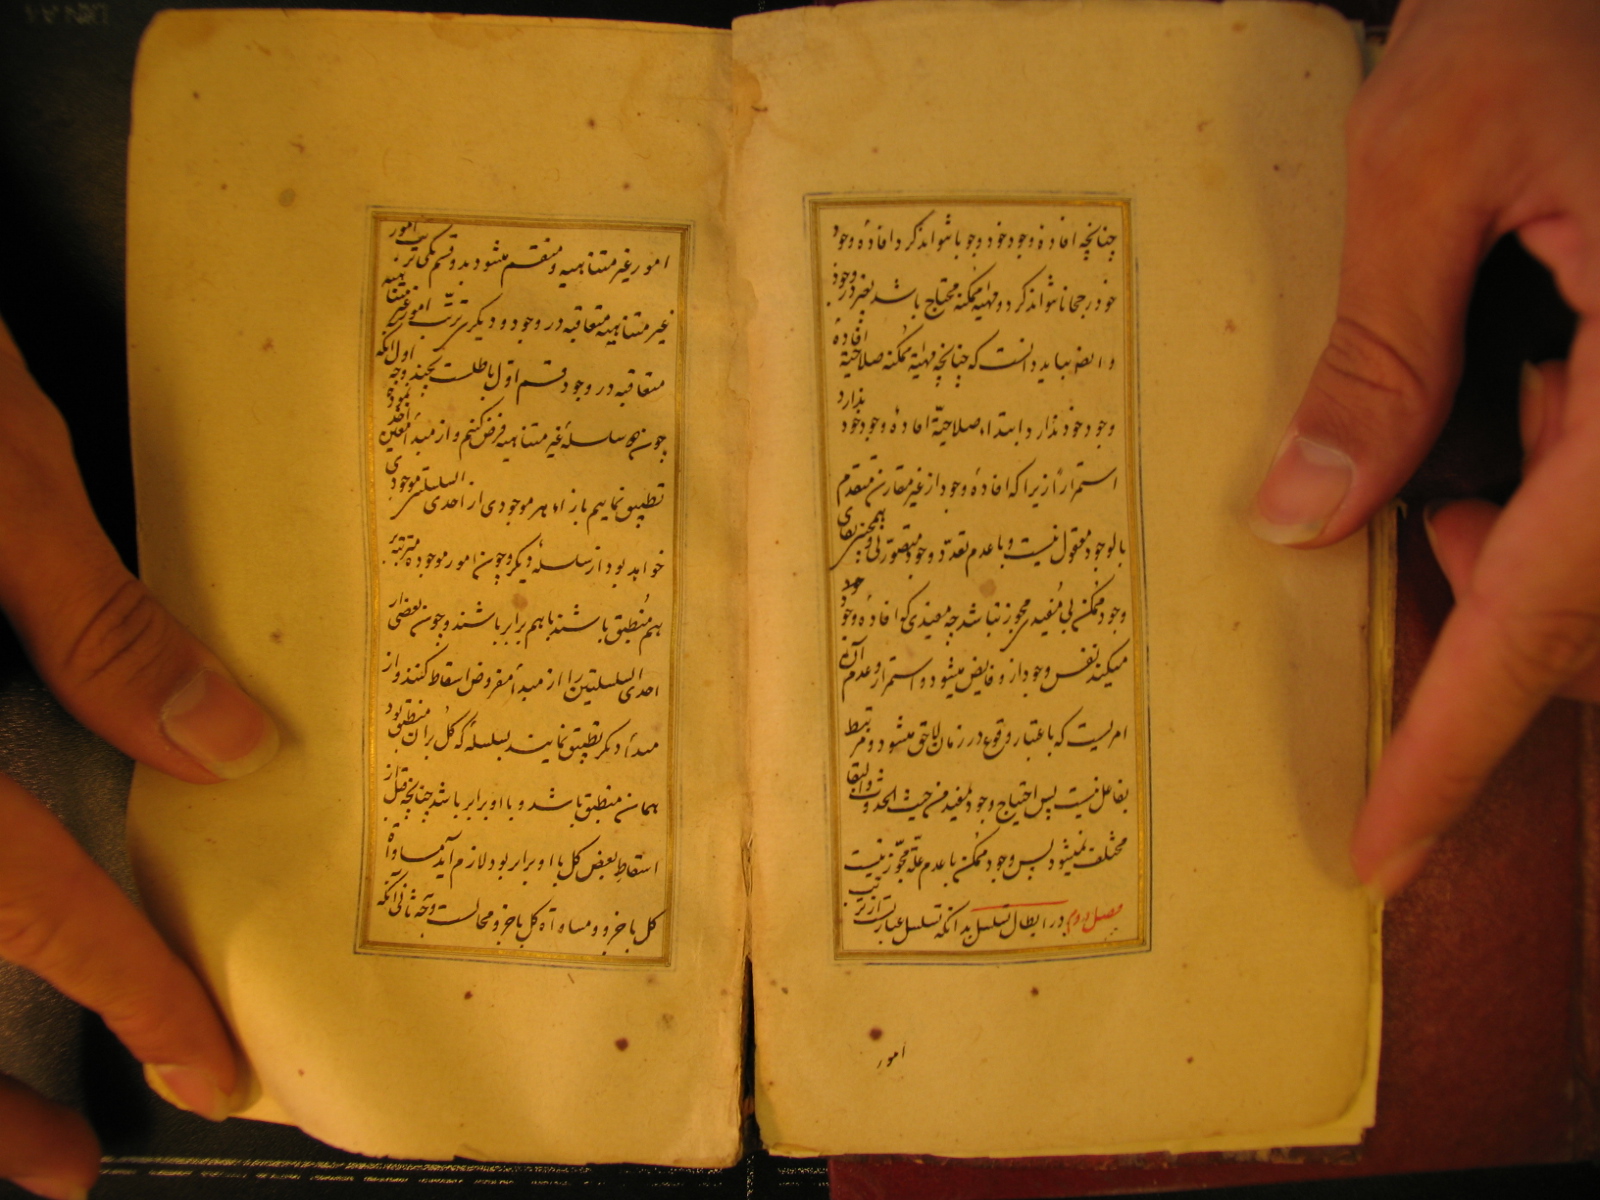 چنانچه افادهٔ وجود خود وجوبا نتواند کرد افادهٔ وجود
خود رجحانا نتواند کرد و مهیة ممکنه محتاج باشد بغیر در وجود
و ایضا بباید دانست که چنانچه مهیة ممکنه صلاحیة افادهٔ
وجود خود ندارد ابتداء صلاحیة افادهٔ وجود خود ندارد
استمرارا زیرا که افادهٔ وجود از غیر مقارن متقدم
بالوجود معقول نیست و با عدم تعدد وجود متصور نی و همچنین بقای
وجود ممکن بی مفیدی مجوز نباشد چه مفیدی که افادهٔ وجود
میکند نفس وجود از و فایض میشود و استمرار و عدم آن
امریست که باعتبار وقوع در زمان لاحق میشود و مرتبط
بفاعل نیست پس احتیاج وجود بمفید من حیث الحدوث و البقا
مختلف نمیشود پس وجود ممکن با عدم علة مجوز نیست
فصل دوم در ابطال تسلسل بدانکه تسلسل عبارتست از ترتیب
امور
امور غیر متناهیه و منقسم میشود بدو قسم یکی ترتیب امور
غیر متناهیه متعاقبه در وجود و دیگری ترتب امور غیر متناهیه
متعاقبه در وجود قسم اول باطلست بچند وجه اول آنکه
چون دو سلسلهٔ غیر متناهیه فرض کنیم و از مبدأ معین
تطبیق نماییم بازاء هر موجودی از احدی السلسلتین موجودی
خواهد بود از سلسلهٔ دیگر و چون امور موجوده مترتبه
بهم منطبق باشند باهم برابر باشند و چون بعضی از
احدی السلسلتین را از مبدأ مفروض اسقاط کنند و از
مبدأ دیگر تطبیق نمایند بسلسله که کل بران منطبق بود
همان منطبق باشد و با او برابر باشد چنانچه قبل از
اسقاط بعض کل با او برابر بود لازم آید مساواة
کل با جزو و مساواة کل با جزو محالست وجه ثانی آنکه